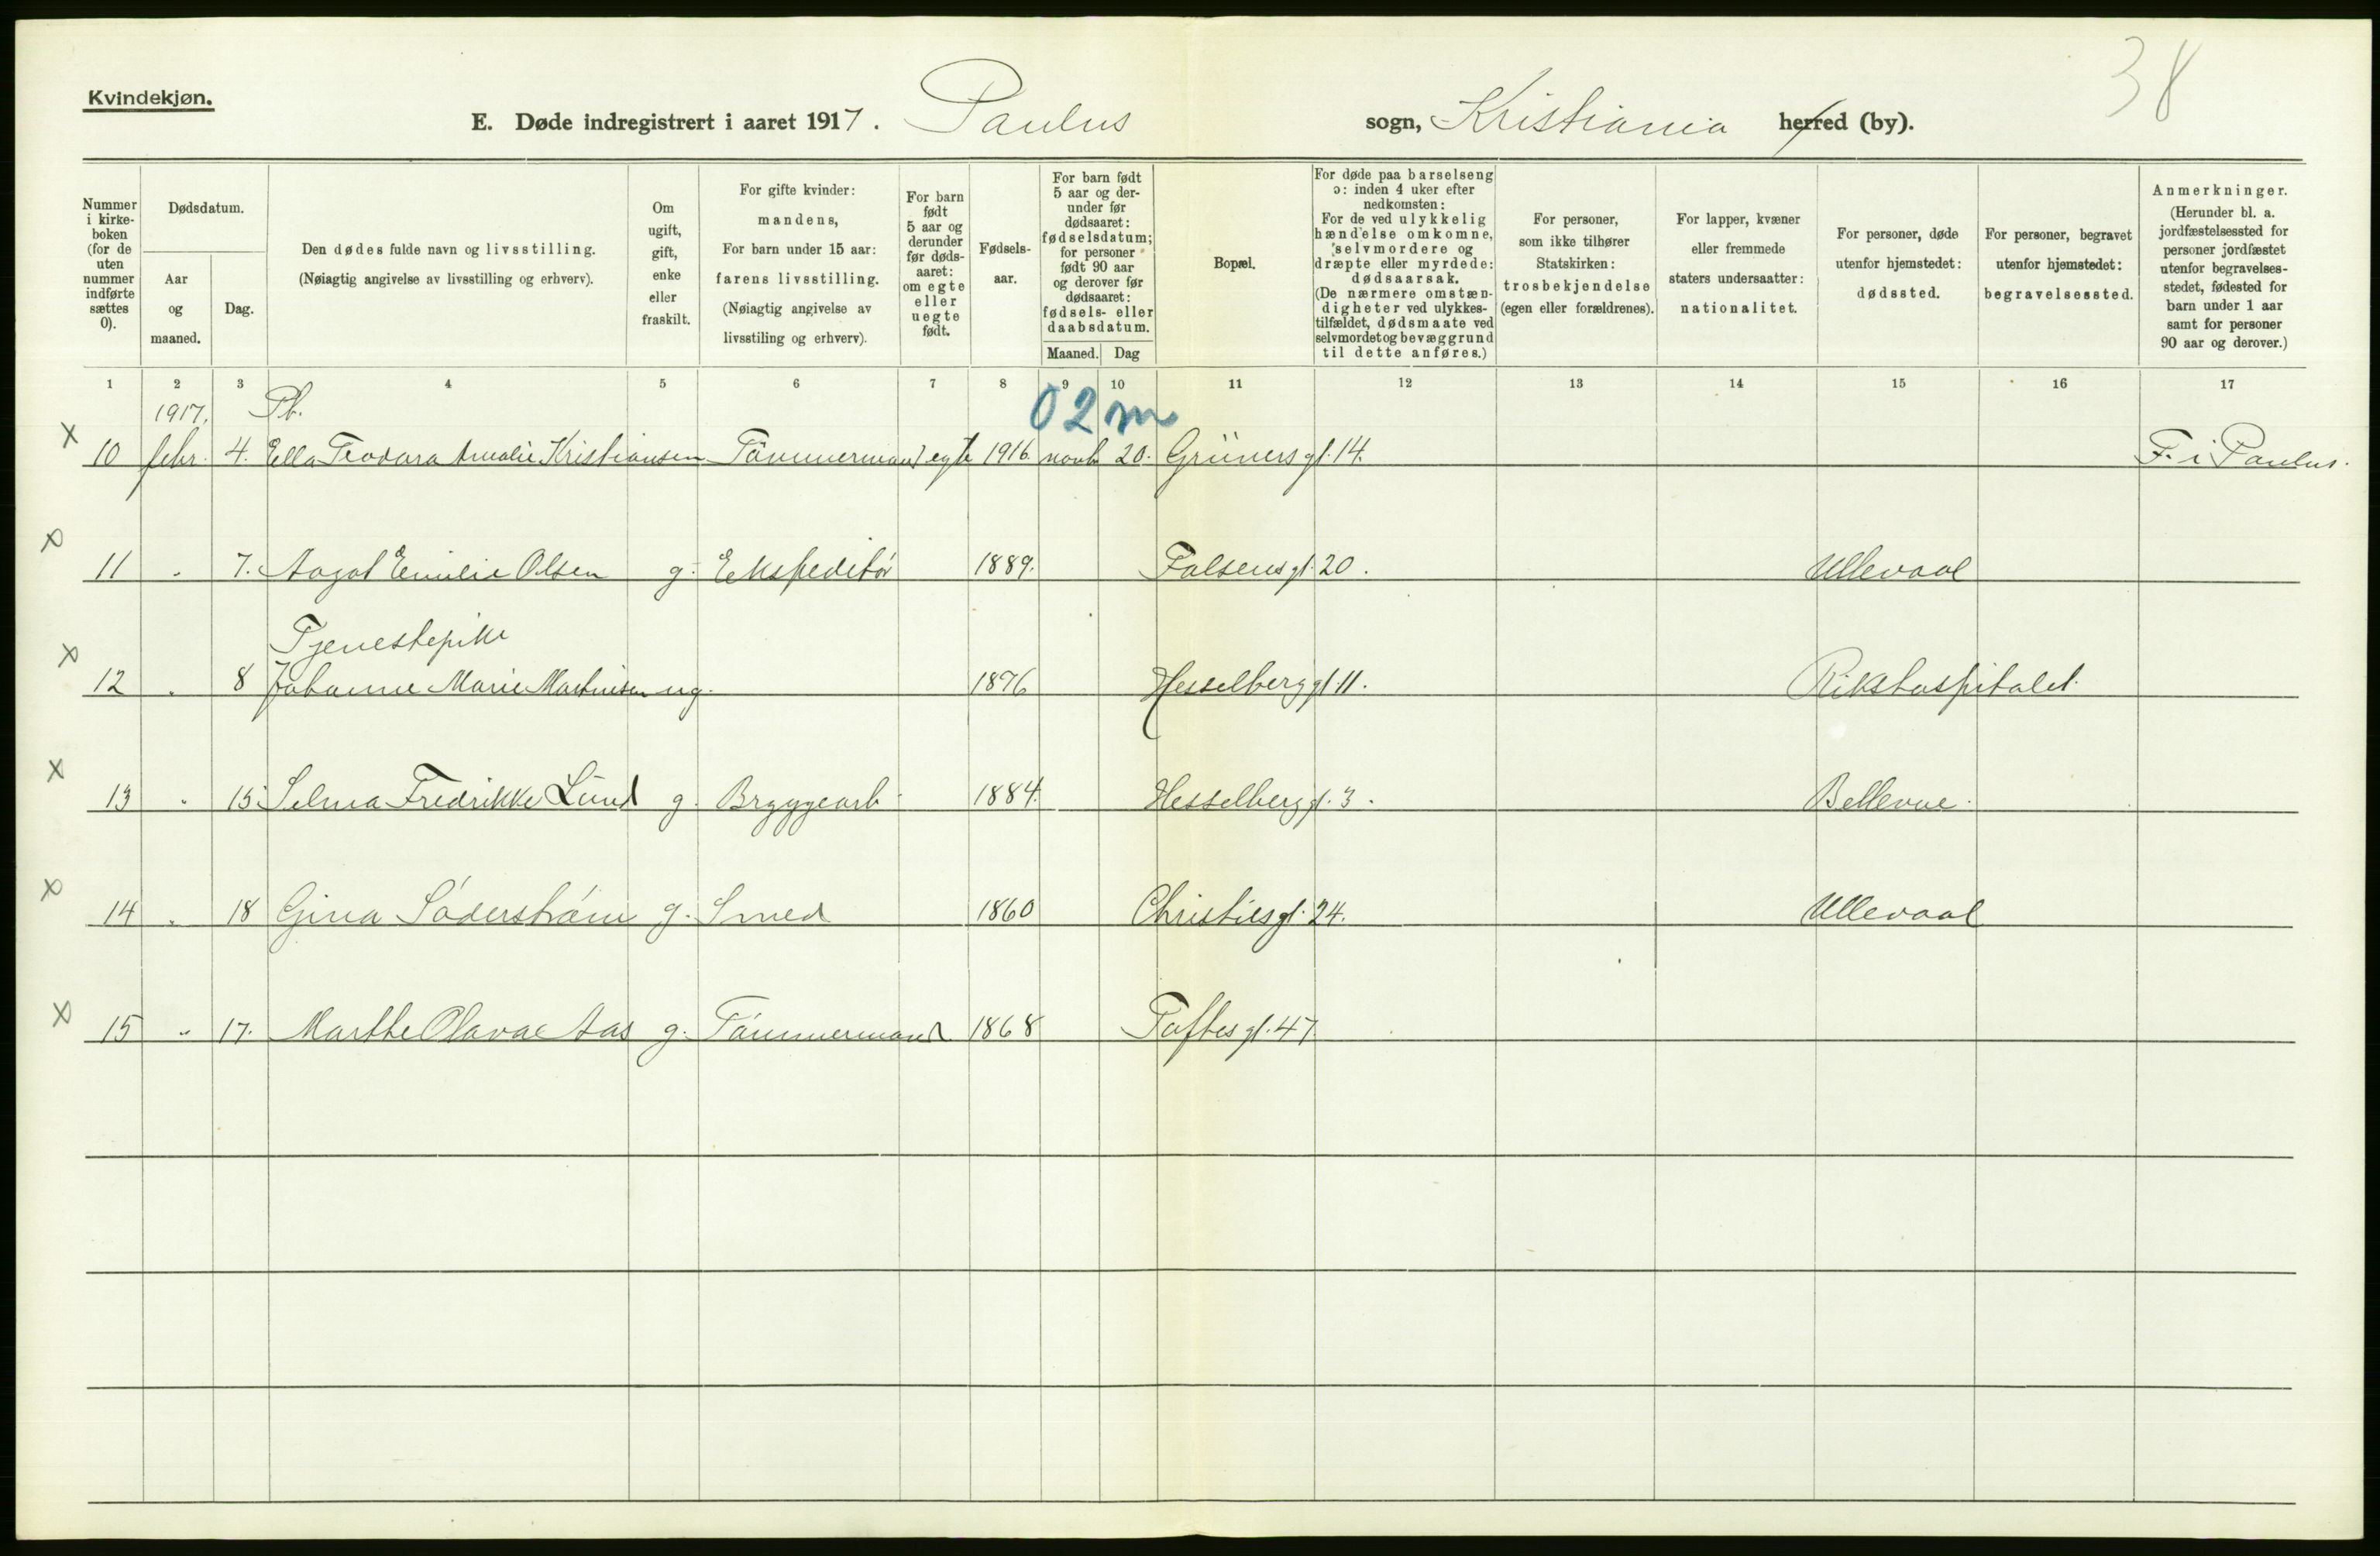 38
Kvindekjøn.
E. Døde indregistrert i aaret 1917. Paulus sogn, Kristiania herred (by).
Nummer i kirkeboken (for de uten nummer indførte sættes 0).
Dødsdatum.
Aar og maaned.
Dag.
Den dødes fulde navn og livsstilling.
(Nøiagtig angivelse av livsstilling og erhverv).
Om ugift, gift, enke eller fraskilt.
For gifte kvinder: mandens,
For barn under 15 aar: farens livsstilling.
(Nøiagtig angivelse av livsstiling og erhverv).
For barn født 5 aar og derunder før dødsaaret: om egte eller uegte født.
Fødselsaar.
For barn født 5 aar og derunder før dødsaaret: fødselsdatum; for personer født 90 aar og derover før dødsaaret: fødsels- eller daabsdatum.
Maaned. Dag
Bopæl.
For døde paa barselseng ɔ: inden 4 uker efter nedkomsten:
For de ved ulykkelig hændelse omkomne, selvmordere og dræpte eller myrdede: dødsaarsak.
(De nærmere omstændigheter ved ulykkestilfældet, dødsmaate ved selvmordet og bevæggrund til dette anføres.)
For personer, som ikke tilhører Statskirken: trosbekjendelse (egen eller forældrenes).
For lapper, kvæner eller fremmede staters undersaatter: nationalitet.
For personer, døde utenfor hjemstedet: dødssted.
For personer, begravet utenfor hjemstedet: begravelsessted.
Anmerkninger.
(Herunder bl. a. jordfæstelsessted for personer jordfæstet utenfor begravelsesstedet, fødested for barn under 1 aar samt for personer 90 aar og derover.)
1 2 3 4 5 6 7 8 9 10 11 12 13 14 15 16 17
1917. Pb. 02m
x 10 febr. 4. Ella Teodora Amalie Kristiansen Tömmermand egte 1916 novb 20. Grüners gt. 14. F. i Paulus.
x 11 " 7. Aagot Emilie Olsen g. Ekspeditör 1889. Falsens gt. 20. Ullevaal
Tjenestepike
x 12 " 8 Johanne Marie Martinsen ug. 1876 Hesselberg gt. 11. Rikshospitalet.
x 13 " 15 Selma Fredrikke Lund g. Bryggearb. 1884. Hesselberg gt. 3. Bellevue.
x 14 " 18 Gina Söderström g. Smed 1860 Christies gt. 24. Ullevaal
x 15 " 17. Marthe Olavae Aas g. Tömmermand 1868 Toftes gt. 47